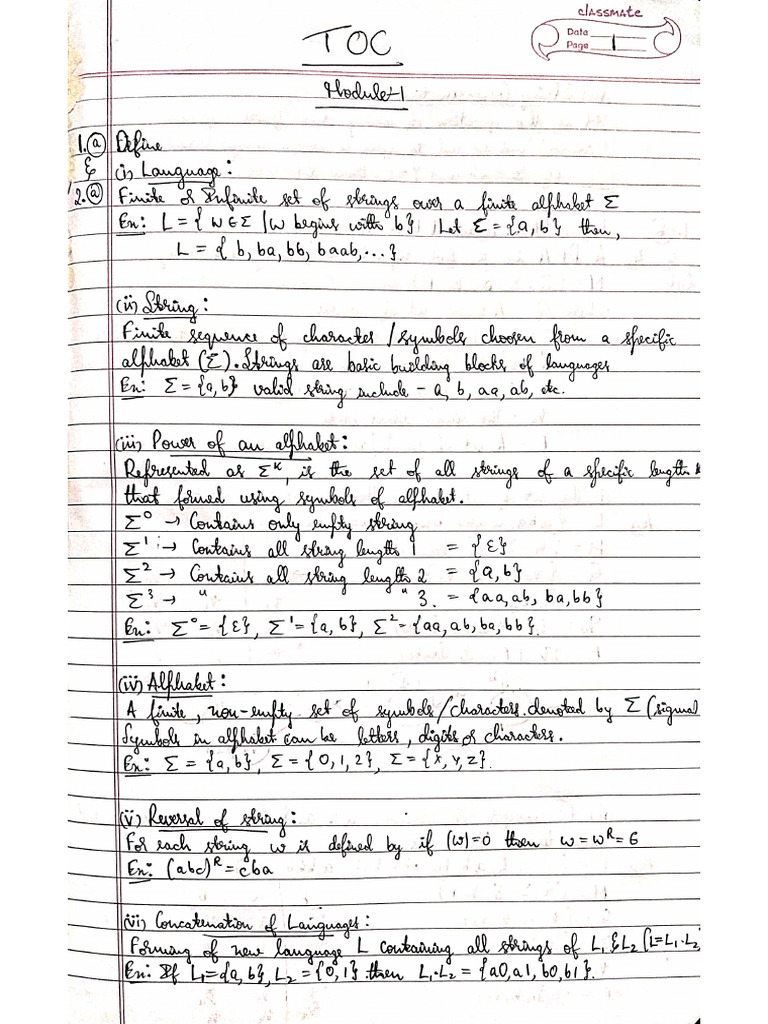 classmate
Date
Page 1
TOC
Module-1
1.(a) Define
& (i) Language:
2.(a) Finite or Infinite set of strings over a finite alphabet Σ
En: L = { w ∈ Σ | w begins with b} Let Σ = {a, b} then,
L = { b, ba, bb, baab, ...}.
(ii) String:
Finite sequence of character / symbols choosen from a specific
alphabet (Σ). Strings are basic building blocks of languages
En: Σ = {a, b} valid string include - a, b, aa, ab, etc.
(iii) Power of an alphabet:
Represented as Σᴷ, is the set of all strings of a specific length k
that formed using symbols of alphabet.
Σ⁰ → Contains only empty string
Σ¹ :→ Contains all string length 1 = {ε}
Σ² → Contains all string length 2 = {a, b}
Σ³ → " " 3. = {aa, ab, ba, bb}
En: Σ⁰ = {ε}, Σ¹ = {a, b}, Σ² = {aa, ab, ba, bb}.
(iv) Alphabet:
A finite, non-empty set of symbols/characters denoted by Σ (sigma)
Symbols in alphabet can be letters, digits or characters.
En: Σ = {a, b}, Σ = {0, 1, 2}, Σ = {x, y, z}.
(v) Reversal of string:
For each string w is defined by if |w| = 0 then w = wᴿ = ε
En: (abc)ᴿ = cba
(vi) Concatenation of Languages:
Forming of new language L containing all strings of L₁ & L₂ (L = L₁.L₂
En: If L₁ = {a, b}, L₂ = {0, 1} then L₁.L₂ = {a0, a1, b0, b1}.